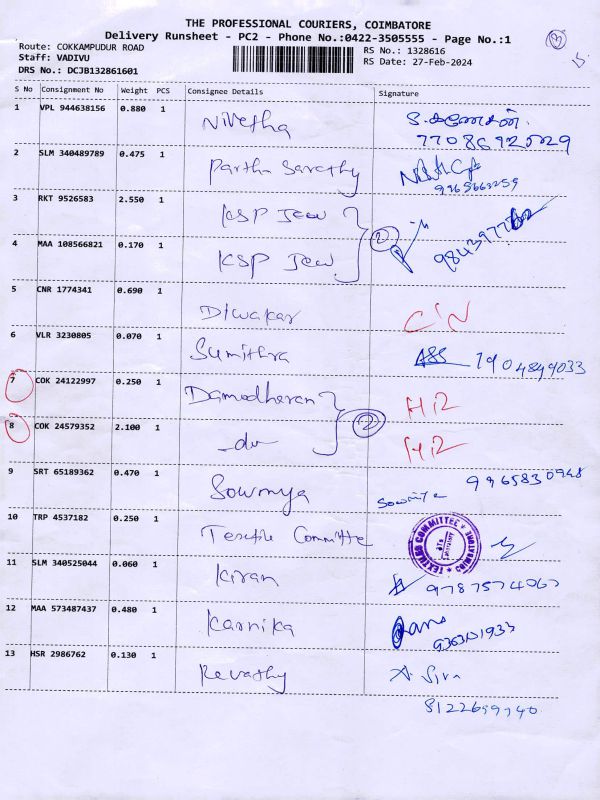 THE PROFESSIONAL COURIERS, COIMBATORE
Delivery Runsheet - PC2 - Phone No.:0422-3505555 - Page No.:1
Route: COKKAMPUDUR ROAD
RS No.: 1328616
Staff: VADIVU
RS Date: 27-Feb-2024
DRS No.: DCJB132861601
S No Consignment No Weight PCS Consignee Details Signature
1 VPL 944638156 0.880 1 Nivetha
2 SLM 340489789 0.475 1 Partha Sarathy
9965663259
3 RKT 9526583 2.550 1 KSP Jew
2
4 MAA 108566821 0.170 1 KSP Jew
5 CNR 1774341 0.690 1 Diwakar
6 VLR 3230805 0.070 1 Sumithra 7904849033
7 COK 24122997 0.250 1 Damodharan
2
8 COK 24579352 2.100 1 -do-
9 SRT 65189362 0.470 1 Sowmya Sowmiya 9965830948
10 TRP 4537182 0.250 1 Textile Committe TEXTILES COMMITTEE COIMBATORE
11 SLM 340525044 0.060 1 Kiran
12 MAA 573487437 0.480 1 Karnika
13 HSR 2986762 0.130 1 Revathy A. Siva